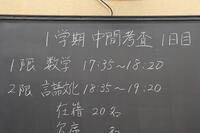 1学期 中間考査 1日目
1限 数学 17:35〜18:20
2限 言語文化 18:35〜19:20
在籍 20名
欠席 名